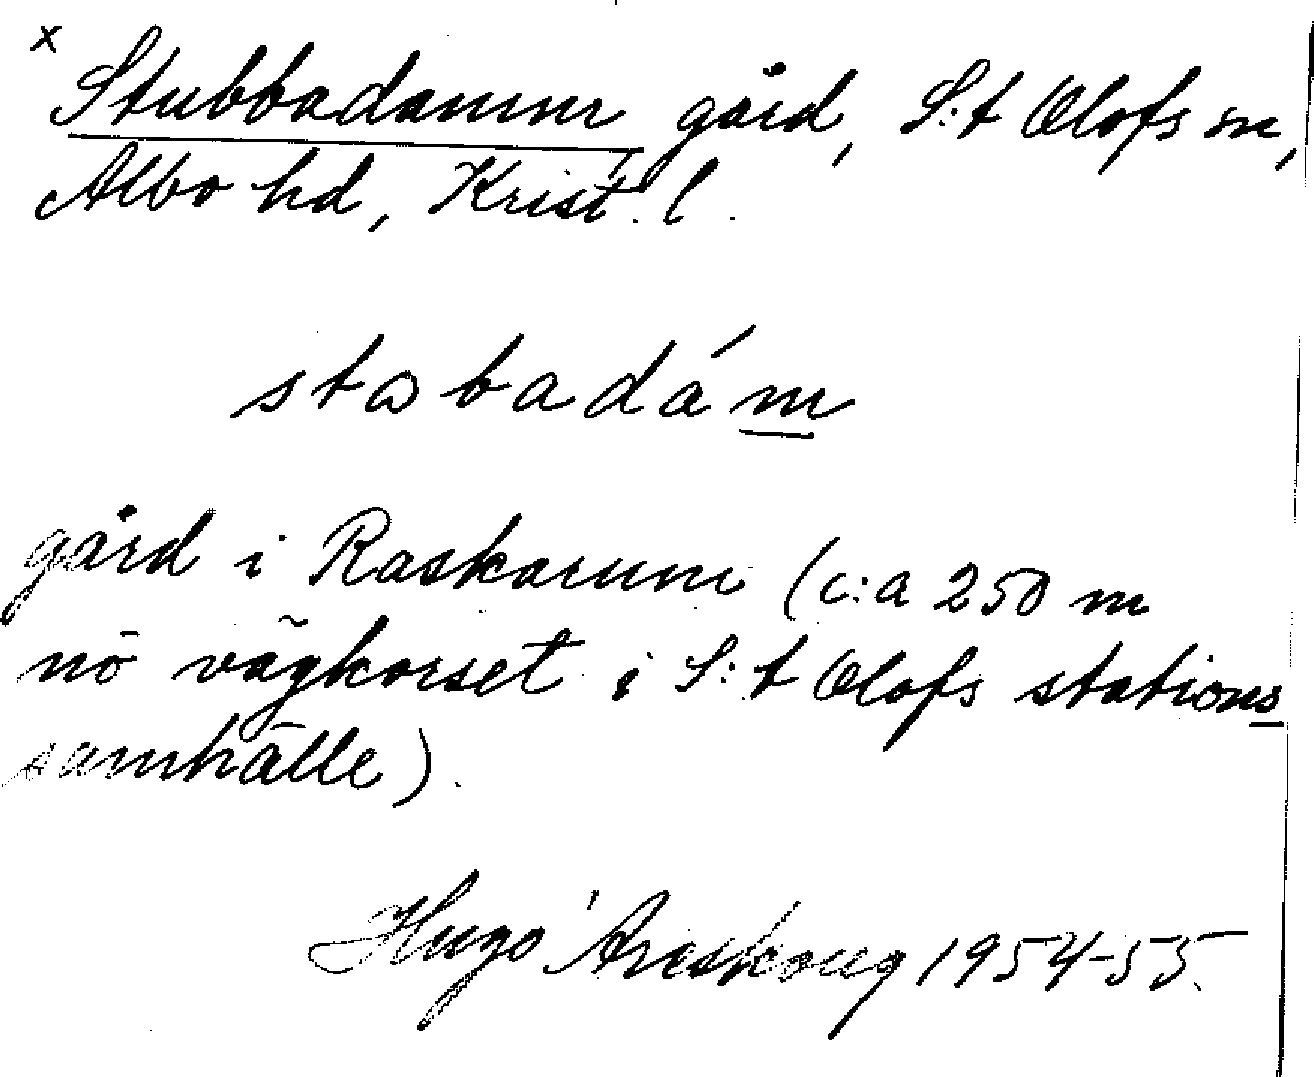 x
Stubbadamm gård, S:t Olofs sn,
Albo hd, Krist. l.
stωbadám
gård i Raskarum (c:a 250 m
nö vägkorset i S:t Olofs stations
samhälle).
Hugo Areskoug 1954-55.